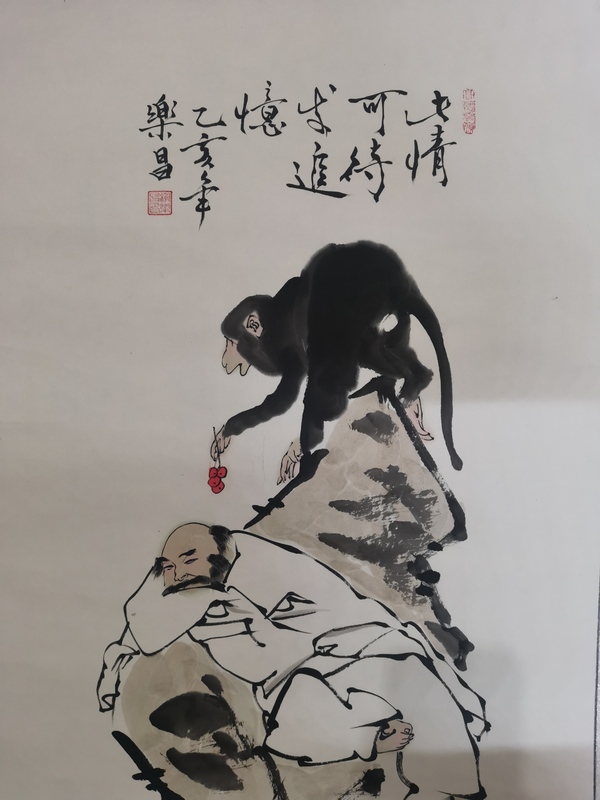 此情
可待
成追
憶
乙亥年
樂昌